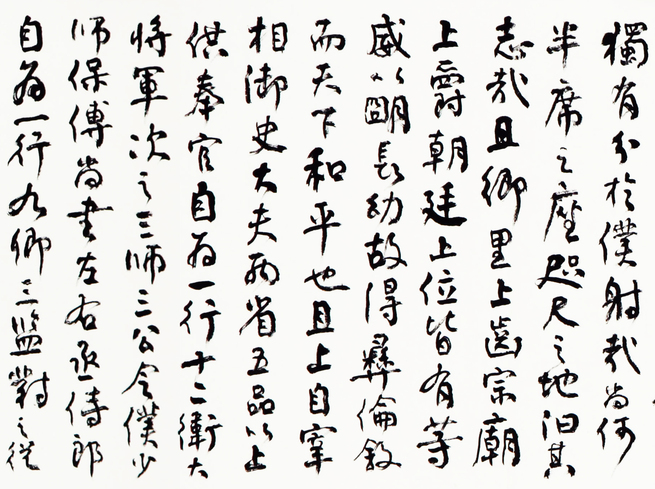 獨有分於僕射哉尚何
半席之座咫尺之地汩其
志哉且鄉里上齒宗廟
上爵朝廷上位皆有等
威以明長幼故得彝倫敘
而天下和平也且上自宰
相御史大夫兩省五品以上
供奉官自為一行十二衛大
將軍次之三師三公令僕少
師保傅尚書左右丞侍郎
自為一行九卿三監對之從